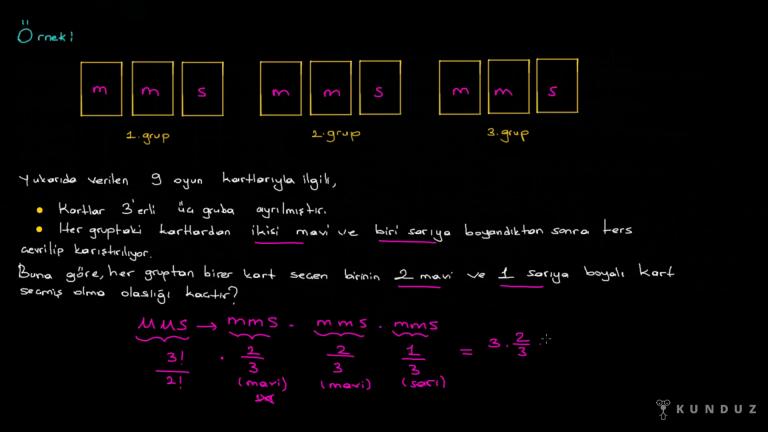 Örnek!
m m s m m s m m s
1.grup 2.grup 3.grup
Yukarıda verilen 9 oyun kartlarıyla ilgili,
• Kartlar 3'erli üç gruba ayrılmıştır.
• Her gruptaki kartlardan ikisi mavi ve biri sarıya boyandıktan sonra ters
çevrilip karıştırılıyor.
Buna göre, her gruptan birer kart seçen birinin 2 mavi ve 1 sarıya boyalı kart
seçmiş olma olasılığı kaçtır?
MMS → mms . mms . mms
3!/2! . 2/3 2/3 1/3 = 3 . 2/3 .
(mavi) (mavi) (sarı)
KUNDUZ